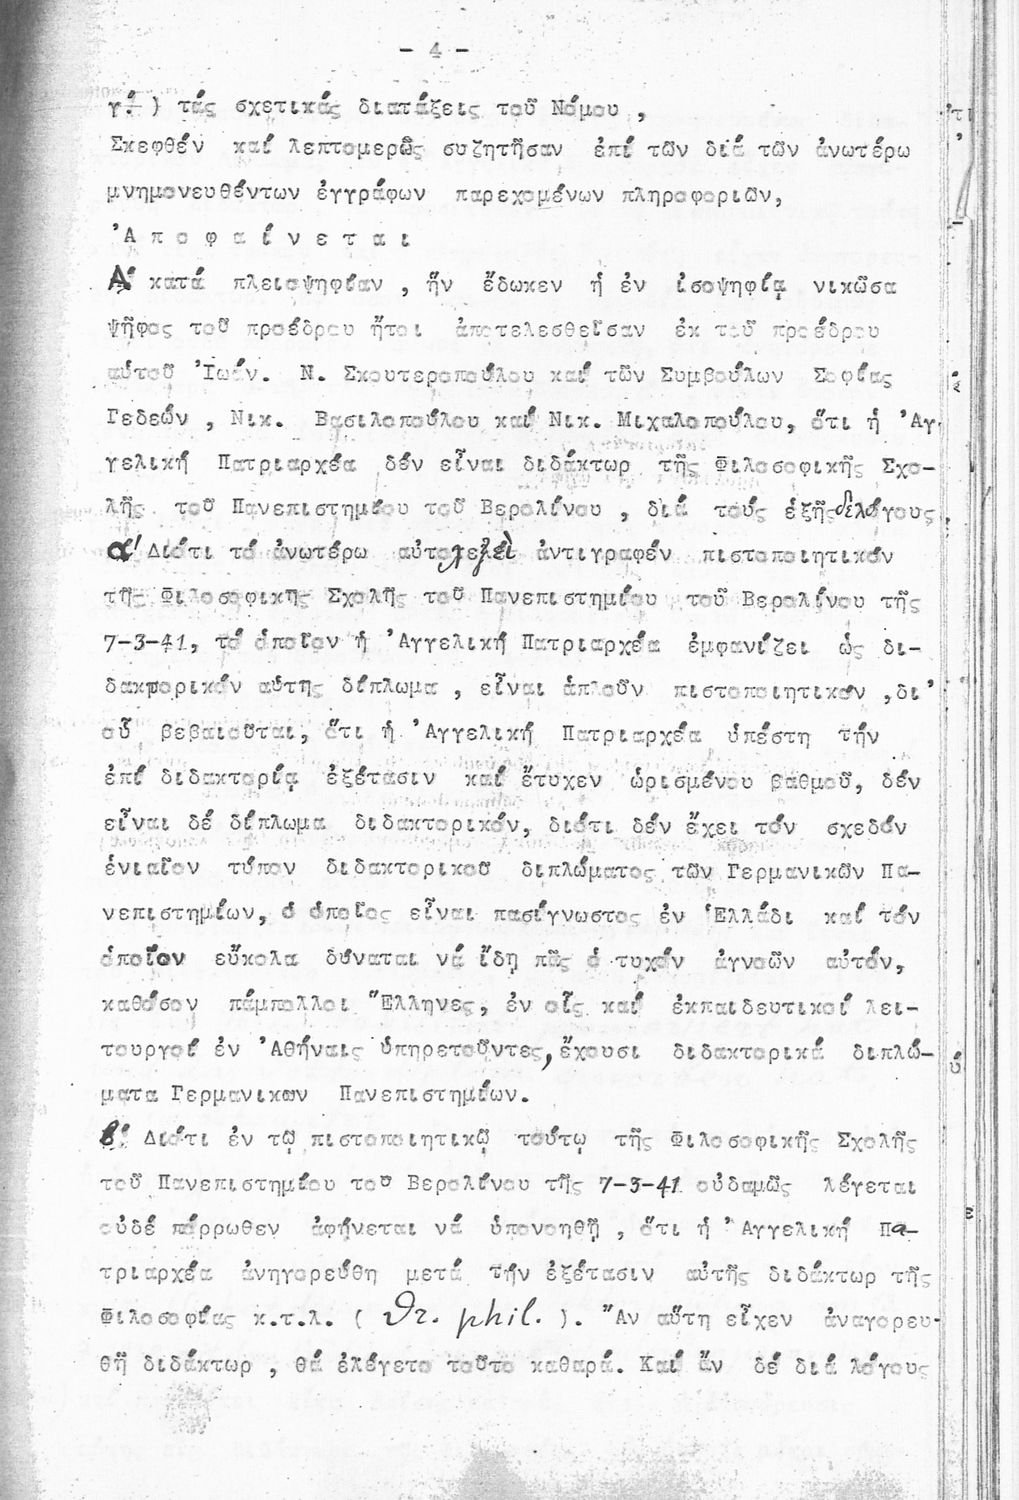 - 4 -
γ!) τάς σχετικάς διατάξεις τοῦ Νόμου ,
Σκεφθέν καί λεπτομερῶς συζητῆσαν ἐπί τῶν διά τῶν ἀνωτέρω
μνημονευθέντων ἐγγράφων παρεχομένων πληροφοριῶν,
Ἀ π ο φ α ί ν ε τ α ι
Αί κατά πλειοψηφίαν , ἥν ἔδωκεν ἡ ἐν ἰσοψηφίᾳ νικῶσα
ψῆφος τοῦ προέδρου ἤτοι ἀποτελεσθεῖσαν ἐκ τοῦ προέδρου
αὐτοῦ Ἰωάν. Ν. Σκουτεροπούλου καί τῶν Συμβούλων Σοφίας
Γεδεών , Νικ. Βασιλοπούλου καί Νικ. Μιχαλοπούλου, ὅτι ἡ Ἀγ-
γελική Πατριαρχέα δέν εἶναι διδάκτωρ τῆς Φιλοσοφικῆς Σχο-
λῆς τοῦ Πανεπιστημίου τοῦ Βερολίνου , διά τούς ἑξῆς λόγους
α' Διότι τό ἀνωτέρω ἀντιγραφέν πιστοποιητικόν
τῆς Φιλοσοφικῆς Σχολῆς τοῦ Πανεπιστημίου τοῦ Βερολίνου τῆς
7-3-41, τό ὁποῖον ἡ Ἀγγελική Πατριαρχέα ἐμφανίζει ὡς δι-
δακτορικόν αὐτης δίπλωμα , εἶναι ἁπλοῦν πιστοποιητικόν ,δι'
οὗ βεβαιοῦται, ὅτι ἡ Ἀγγελική Πατριαρχέα ὑπέστη τήν
ἐπί διδακτορίᾳ ἐξέτασιν καί ἔτυχεν ὡρισμένου βαθμοῦ, δέν
εἶναι δέ δίπλωμα διδακτορικόν, διότι δέν ἔχει τόν σχεδόν
ἑνιαῖον τύπον διδακτορικοῦ διπλώματος τῶν Γερμανικῶν Πα-
νεπιστημίων, ὁ ὁποῖος εἶναι πασίγνωστος ἐν Ἑλλάδι καί τόν
ὁποῖον εὔκολα δύναται νά ἴδη πᾶς ὁ τυχόν ἀγνοῶν αὐτόν,
καθόσον πάμπολλοι Ἕλληνες, ἐν οἷς καί ἐκπαιδευτικοί λει-
τουργοί ἐν Ἀθήναις ὑπηρετοῦντες, ἔχουσι διδακτορικά διπλώ-
ματα Γερμανικων Πανεπιστημίων.
β! Διότι ἐν τῷ πιστοποιητικῷ τούτῳ τῆς Φιλοσοφικῆς Σχολῆς
τοῦ Πανεπιστημίου τοῦ Βερολίνου τῆς 7-3-41 οὐδαμῶς λέγεται
οὐδέ πόρρωθεν ἀφήνεται νά ὑπονοηθῇ , ὅτι ἡ Ἀγγελική Πα-
τριαρχέα ἀνηγορεύθη μετά τήν ἐξέτασιν αὐτῆς διδάκτωρ τῆς
Φιλοσοφίας κ.τ.λ. ( Dr. phil. ). Ἄν αὕτη εἶχεν ἀναγορευ-
θῆ διδάκτωρ , θά ἐλέγετο τοῦτο καθαρά. Καί ἄν δέ διά λόγους